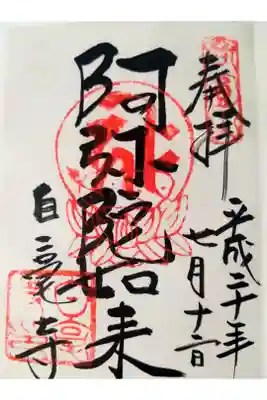 奉拝
平成二十年
七月十一日
阿弥陀如来